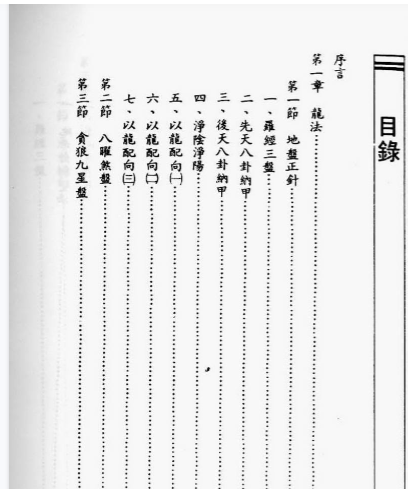 目錄
序言
第一章 龍法
第一節 地盤正針
一、羅經三盤
二、先天八卦納甲
三、後天八卦納甲
四、淨陰淨陽
五、以龍配向㈠
六、以龍配向㈡
七、以龍配向㈢
第二節 八曜煞盤
第三節 貪狼九星盤